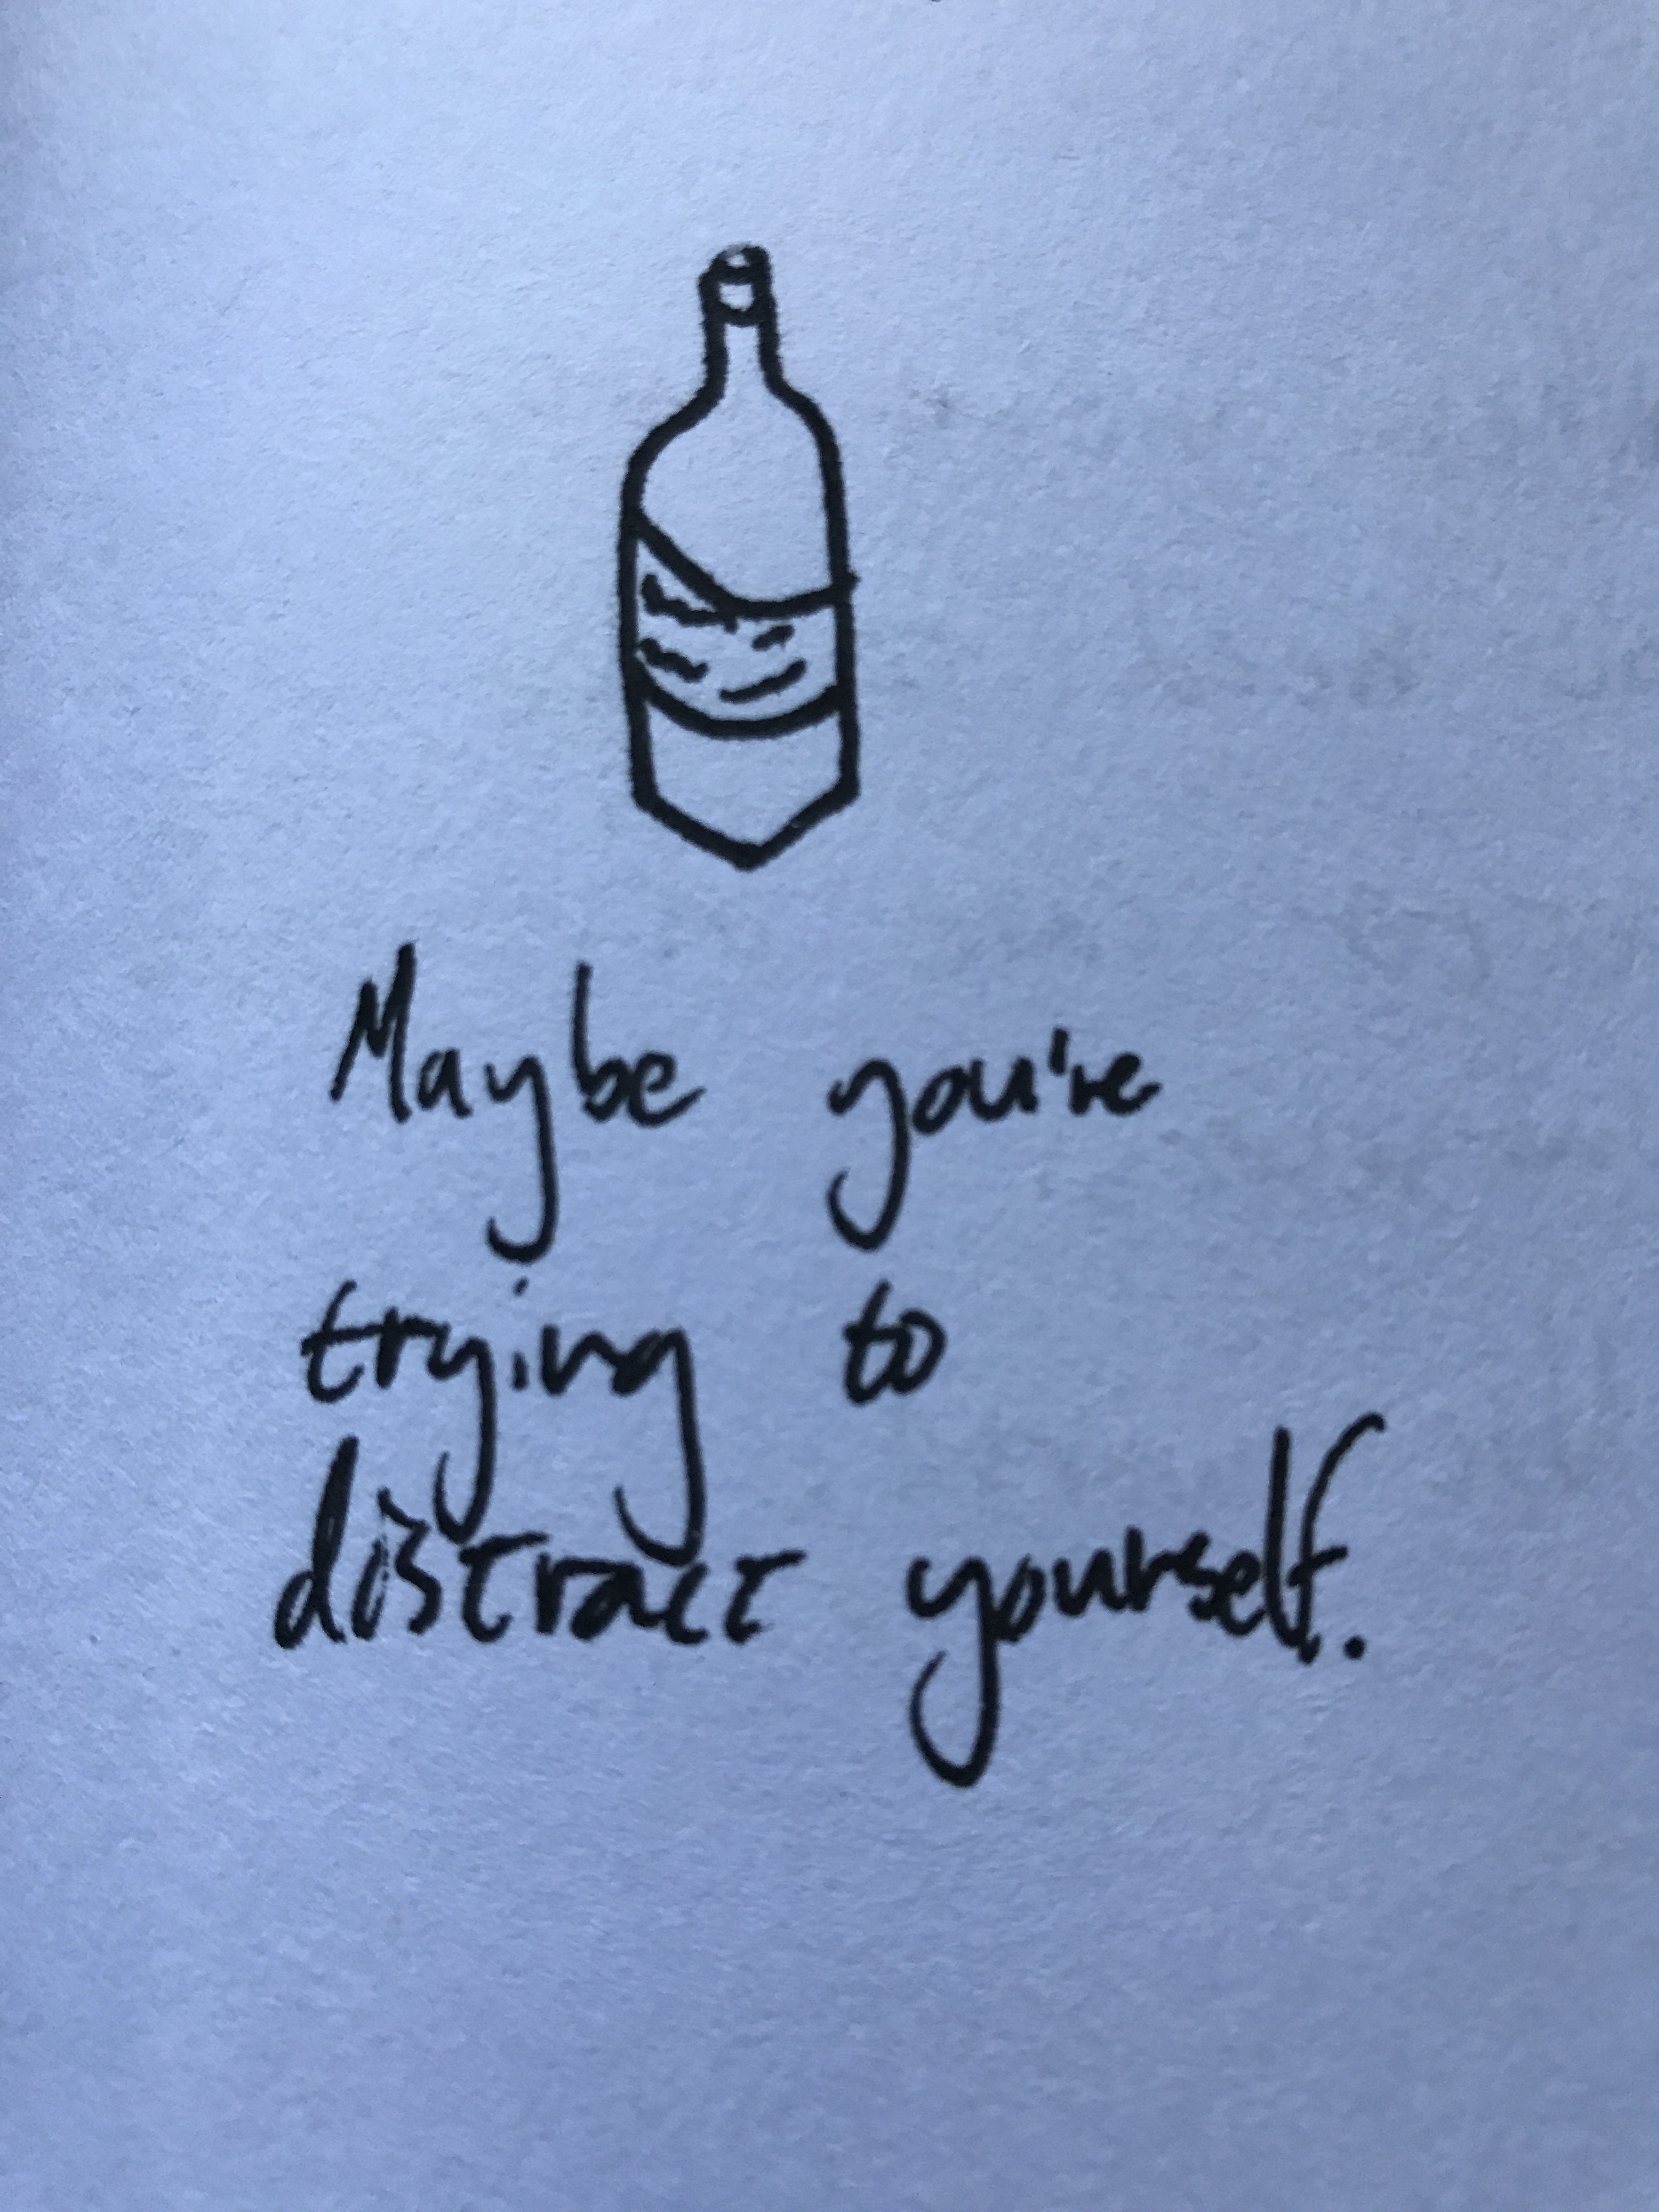 Maybe you're
trying to
distract yourself.